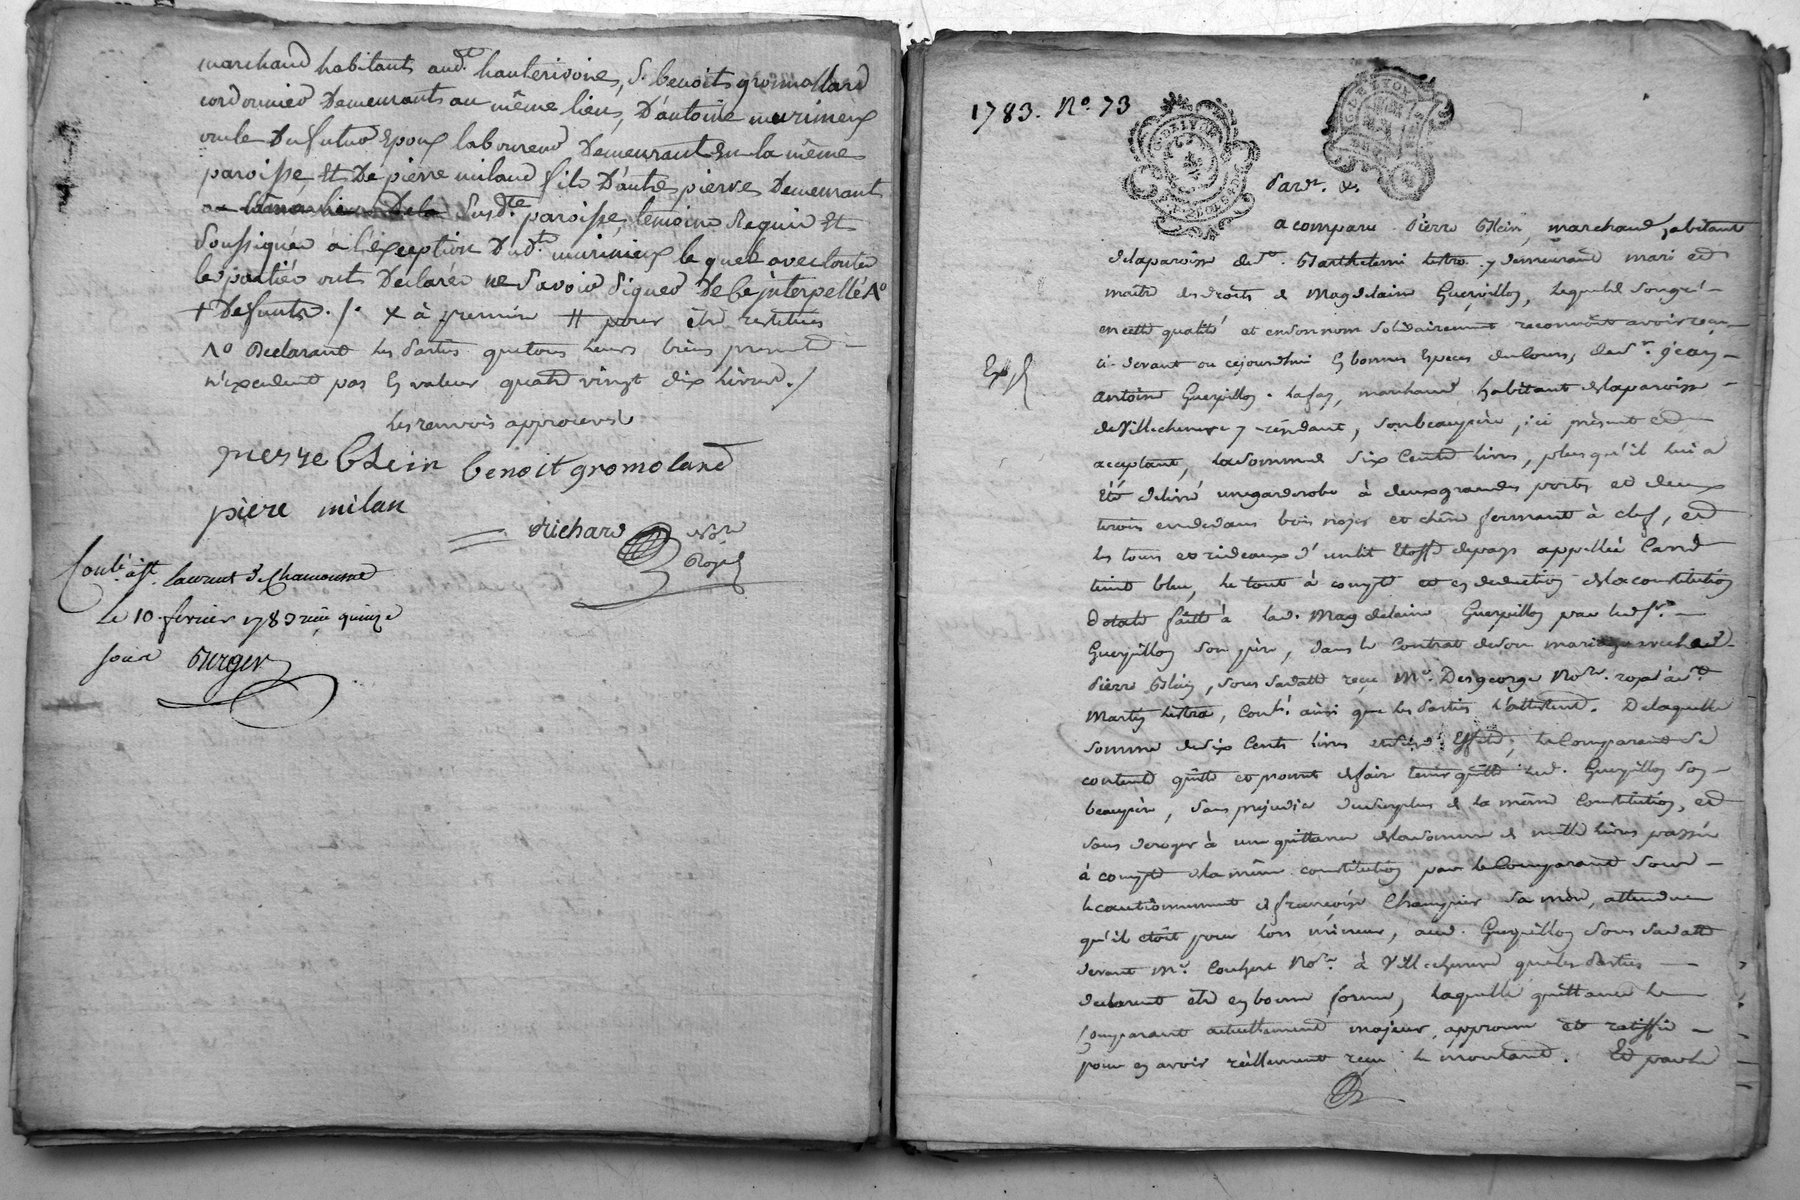 marchand habitants aud.t hauterivoire, S. benoit gromollard
cordonnier Demeurants au même lieu, D'antoine murinieux
oncle Du futur Epoux laboureur Demeurant En la même
paroisse, Et De pierre miland fils D'autre pierre Demeurant
Susd.te paroisse, temoins Requis Et
Soussignés à l'éxception Dud.t murinieux lequel avec toutes
les parties ont Declarés ne Savoir Signer De Ce jnterpellé Λº
+ Defunts ./. x à premier # pour être restitués
Λº Declarant les Parties que tous leurs biens present
n'excedent pas la valeur quatre vingt dix livres ./
les renvois approuvés
pierre blein benoit gromolard
pière milan
Richard No.re
Royal
Conté à St. laurent de Chamousset
le 10 fevrier 1783 reçu quinze
sous Surger
1783. No. 73
G. DE LYON
G. DE LYON
Pard.t &.
a comparu Pierre Blein, marchand habitant
de la paroisse de St. Barthelemi Lestra y demeurant mari et
maitre des droits de Magdelaine Guerpillon, lequel de son gré
en cette qualité et en son nom solidairement reconnoit avoir reçu
ci-devant ou cejourdhui En bonnes Especes du Cours, de Sr. Jean
Exp.
antoine Guerpillon Lafay, marchand habitant de la paroisse
de Villecheneve y résidant, son beaupère, ici présent et
acceptant, la somme Six Cents livres, plus qu'il lui a
Été délivré une garderobe à deux grandes portes et deux
tiroirs en dedans bois noyer et chêne fermant à clef, et
les tours et rideaux d'un lit Etoffe de pays appellée Cariz
teint bleu, le tout à compte et en deduction de la constitution
dotale faitte à lad. Magdelaine Guerpillon par led. Sr.
Guerpillon son père, dans le Contrat de son mariage avec led.
Pierre Blein, sous sa date reçu Me. Desgeorge No.re royal à St.
Martin Lestra, Cont.é ainsi que les Parties l'attestent. De laquelle
somme de six Cents livres et desd. Effets, le Comparant se
contente quitte et promet de faire tenir quitte led. Guerpillon son
beaupère, sans prejudice du surplus de la même Constitution, et
sans deroger à une quittance de la somme de mille livres passée
à compte de la même constitution par le Comparant sous
le cautionnement de françoise Champier sa mère, attendu
qu'il étoit pour lors mineur, aud. Guerpillon sous sa date
devant Me. Couhert No.re à Villecheneve que les Parties
declarent être en bonne forme, laquelle quittance le
Comparant actuellement majeur, approuve et ratiffie
pour en avoir réellement reçu le montant. Et par le